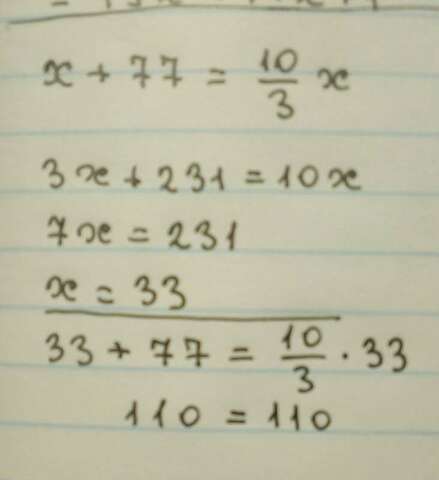 x + 77 = 10/3 x
3x + 231 = 10x
7x = 231
x = 33
33 + 77 = 10/3 · 33
110 = 110